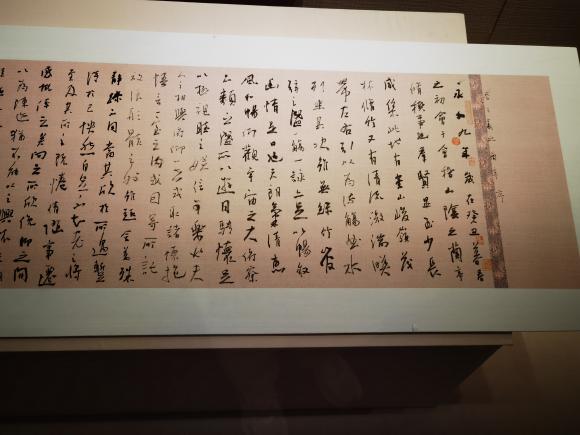 永和九年歲在癸丑暮春
之初會于會稽山陰之蘭亭
脩稧事也羣賢畢至少長
咸集此地有崇山峻嶺茂
林脩竹又有清流激湍暎
帶左右引以為流觴曲水
列坐其次雖無絲竹管
弦之盛一觴一詠亦足以暢敘
幽情是日也天朗氣清惠
風和暢仰觀宇宙之大俯察
品類之盛所以遊目騁懷足
以極視聽之娛信可樂也夫
人之相與俯仰一世或取諸懷抱
悟言一室之內或因寄所託
放浪形骸之外雖趣舍萬殊
靜躁不同當其欣於所遇蹔
得於己怏然自足不知老之將
至及其所之既惓情隨事遷
感慨係之矣向之所欣俛仰之間
以為陳迹猶不能不以之興